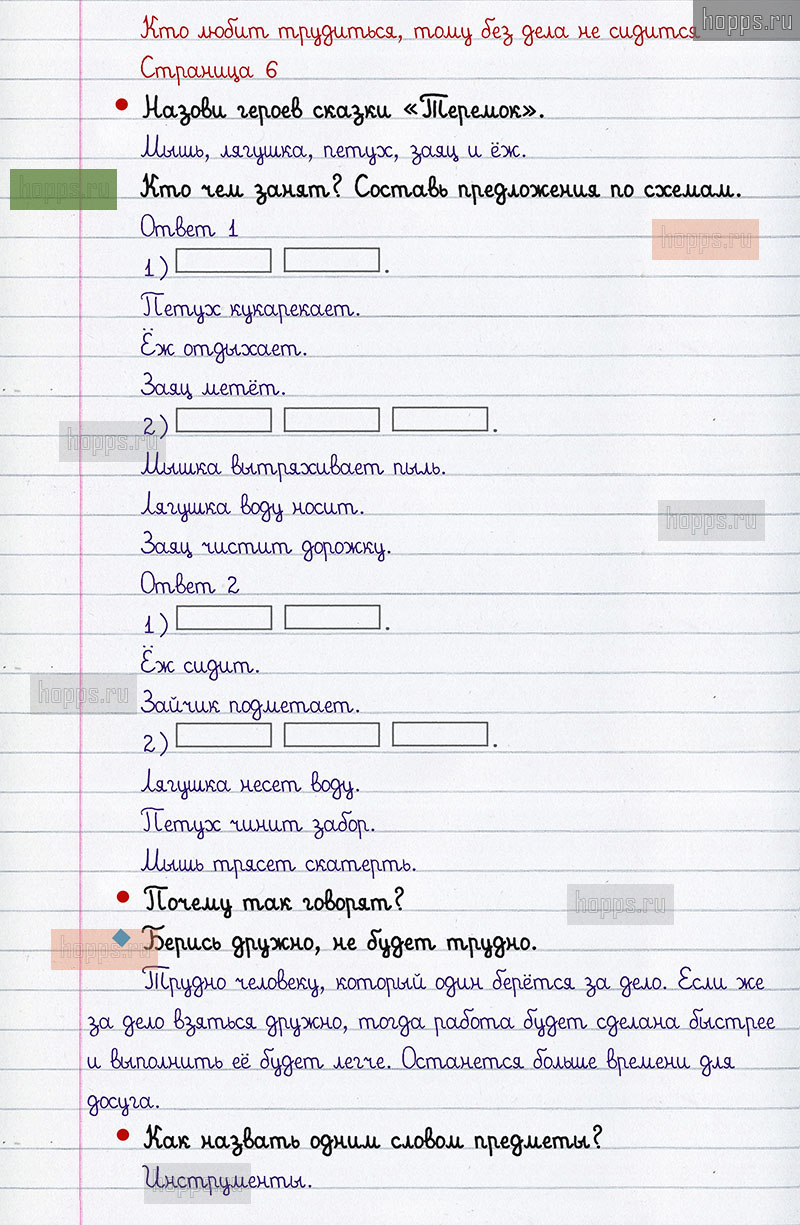 hopps.ru
Кто любит трудиться, тому без дела не сидится
Страница 6
Назови героев сказки «Теремок».
Мышь, лягушка, петух, заяц и ёж.
hopps.ru
Кто чем занят? Составь предложения по схемам.
Ответ 1
hopps.ru
1) .
Петух кукарекает.
Ёж отдыхает.
Заяц метёт.
2) .
hopps.ru
Мышка вытряхивает пыль.
Лягушка воду носит.
hopps.ru
Заяц чистит дорожку.
Ответ 2
1) .
Ёж сидит.
hopps.ru
Зайчик подметает.
2) .
Лягушка несет воду.
Петух чинит забор.
Мышь трясет скатерть.
Почему так говорят?
hopps.ru
Берись дружно, не будет трудно.
hopps.ru
Трудно человеку, который один берётся за дело. Если же
за дело взяться дружно, тогда работа будет сделана быстрее
и выполнить её будет легче. Останется больше времени для
досуга.
Как назвать одним словом предметы?
Инструменты.
hopps.ru